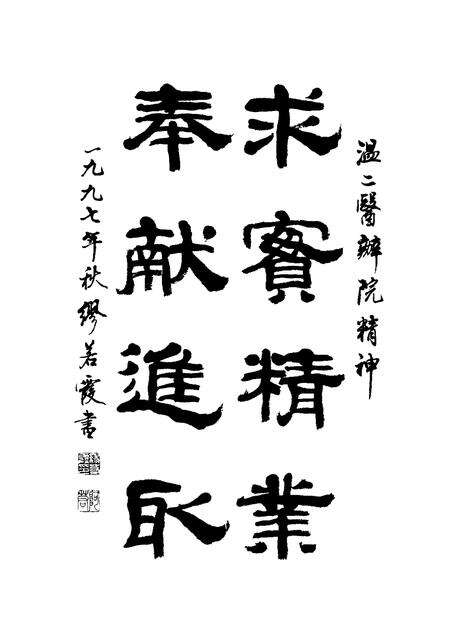 温二醫辦院精神
求實精業
奉献進取
一九九七年秋繆若霞書